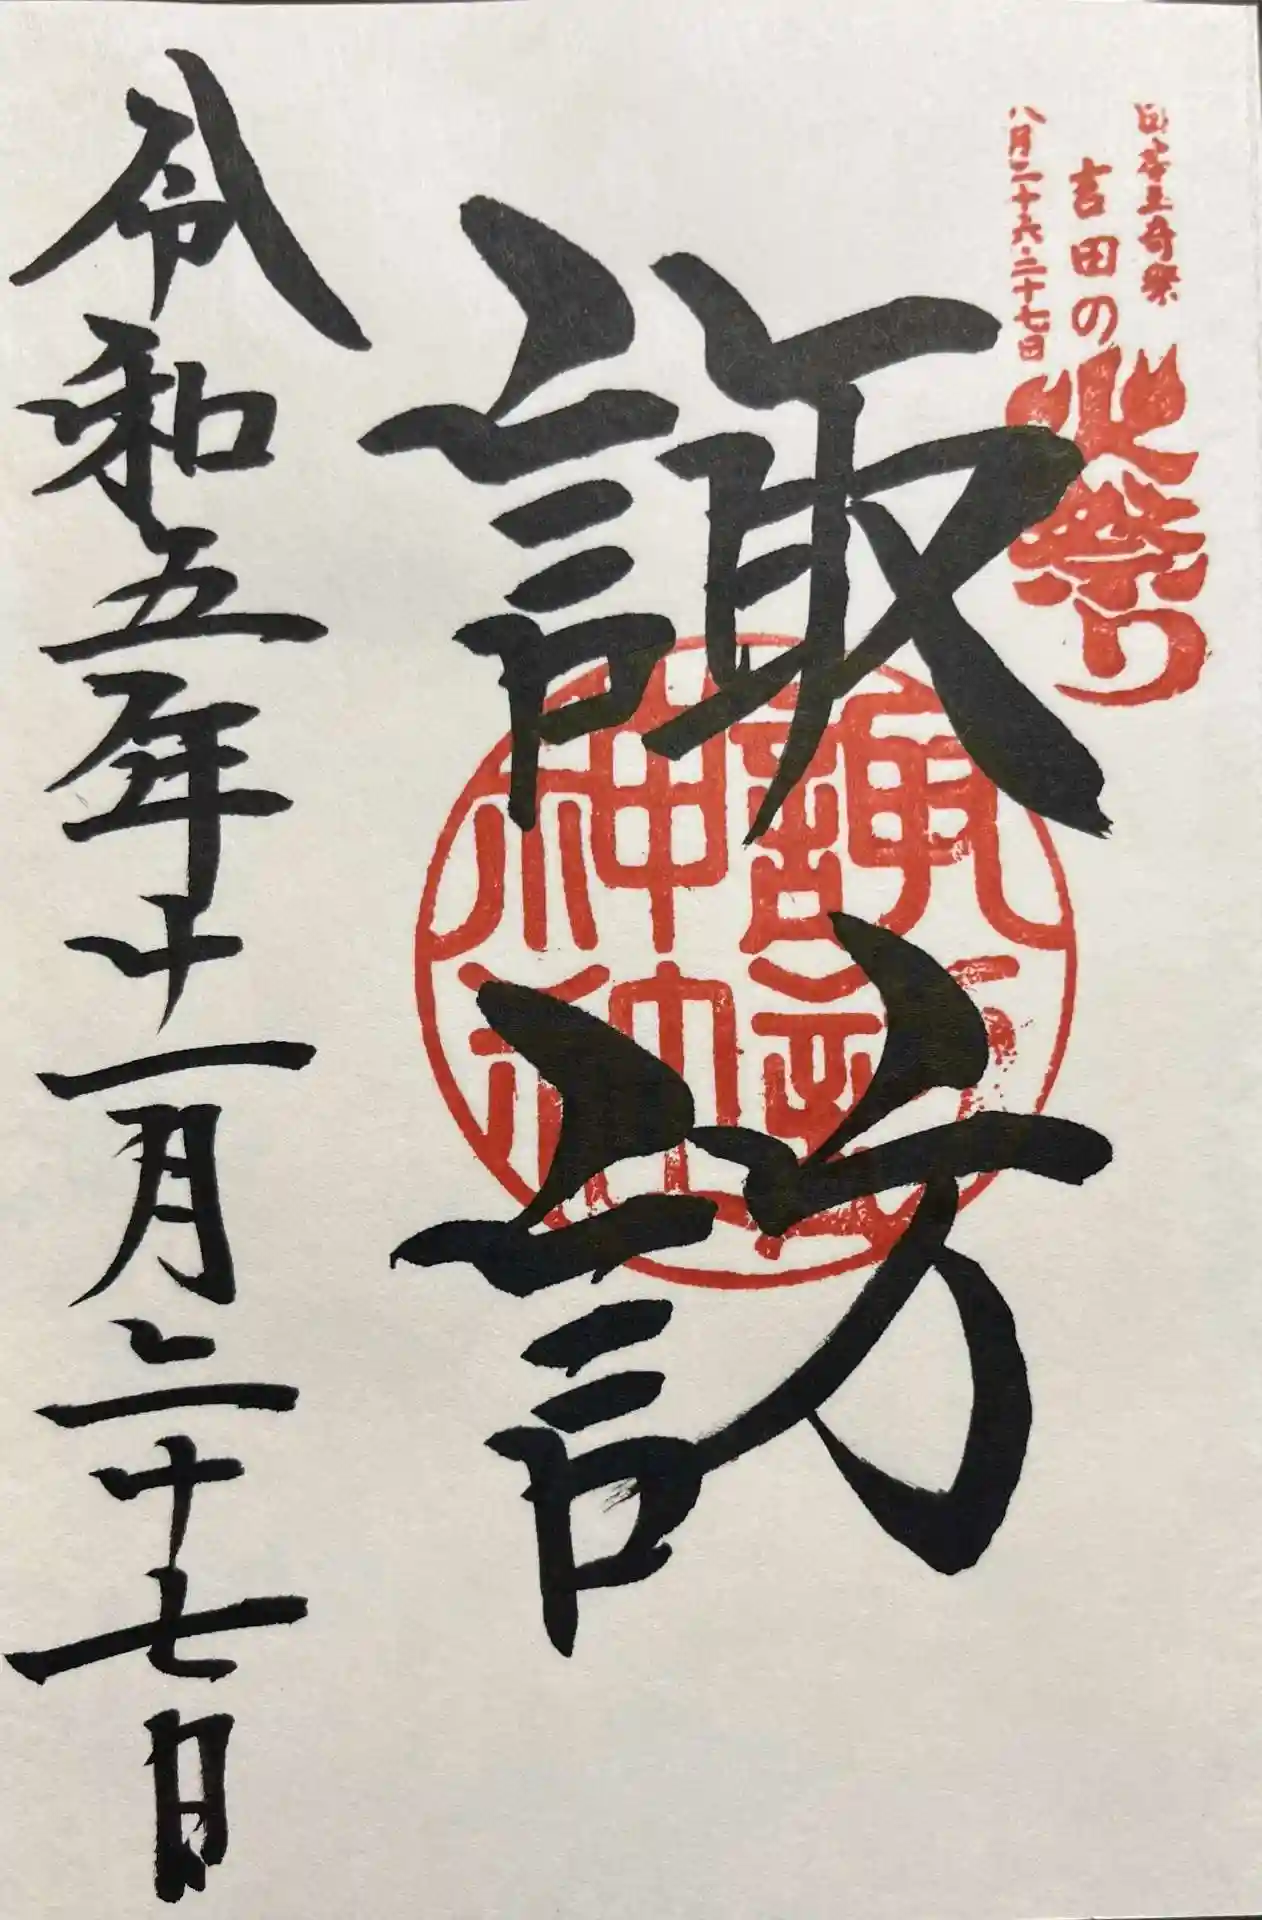 日本三奇祭
吉田の火祭り
八月二十六・二十七日
諏訪
諏訪
神社
令和五年十一月二十七日